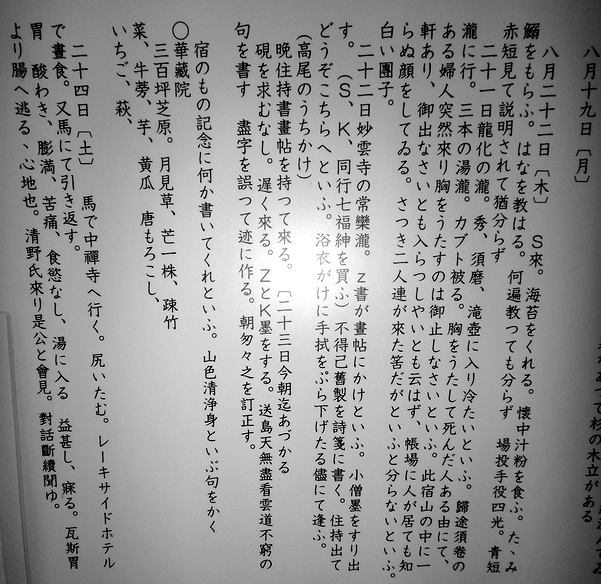 八月十九日〔月〕
八月二十二日〔木〕　S來。海苔をくれる。懷中汁粉を食ふ。たゝみ
鰯をもらふ。はなを教はる。何遍教つても分らず　場投手役四光。青短
赤短見て説明されて猶分らず
二十一日龍化の瀧。秀、須磨、滝壺に入り冷たいといふ。　歸途須巻の
瀧に行。三本の湯瀧。カブト被る。胸をうたして死んだ人ある由にて、
ある婦人突然來り胸をうたすのは御止しなさいといふ。此宿山の中に一
軒あり、御出なさいとも入らつしやいとも云はず、帳場に人が居ても知
らぬ顔をしてゐる。さつき二人連が來た筈だがといふと分らないといふ。
白い團子。
二十二日妙雲寺の常樂瀧。z書が畫帖にかけといふ。小僧墨をすり出
す。（S、K、同行七福紳を買ふ）不得已舊製を詩箋に書く。住持出て
どうぞこちらへといふ。浴衣がけに手拭をぶら下げたる儘にて逢ふ。
（高尾のうちかけ）
晩住持書畫帖を持つて來る。〔二十三日今朝迄あづかる
硯を求むなし。遲く來る。ZとK墨をする。送島天無盡看雲道不窮の
句を書す　盡字を誤つて迹に作る。朝匆々之を訂正す。
宿のもの記念に何か書いてくれといふ。山色清浄身といふ句をかく
〇華藏院
三百坪芝原。月見草、芒一株、疎竹
菜、牛蒡、芋、黄瓜　唐もろこし、
いちご、萩、
二十四日〔土〕　馬で中禪寺へ行く。尻いたむ。レーキサイドホテル
で晝食。又馬にて引き返す。
胃　酸わき、膨満、苦痛、食慾なし、湯に入る　益甚し、寐る。瓦斯胃
より腸へ逃る、心地也。清野氏來り是公と會見。對話斷續聞ゆ。